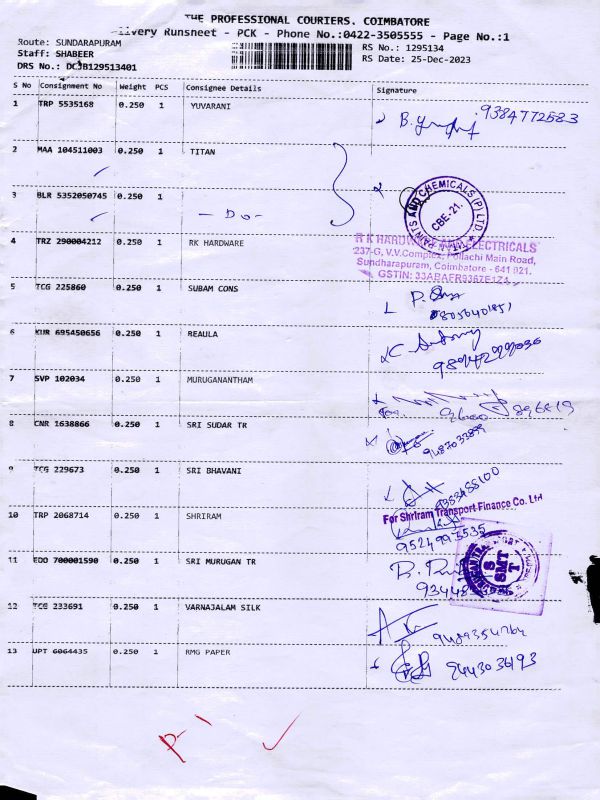 THE PROFESSIONAL COURIERS. COIMBATORE
Delivery Runsheet - PCK - Phone No.:0422-3505555 - Page No.:1
Route: SUNDARAPURAM
Staff: SHABEER
DRS No.: DCJB129513401
RS No.: 1295134
RS Date: 25-Dec-2023
S No Consignment No Weight PCS Consignee Details Signature
1 TRP 5535168 0.250 1 YUVARANI 9384772583
2 MAA 104511003 0.250 1 TITAN
3 BLR 5352050745 0.250 1 - Do -
PAINTS AND CHEMICALS (P) LTD.
CBE-21.
4 TRZ 290004212 0.250 1 RK HARDWARE
R K HARDWARE AND ELECTRICALS
237-G, V.V.Complex, Pollachi Main Road,
Sundharapuram, Coimbatore - 641 021.
GSTIN:
5 TCG 225860 0.250 1 SUBAM CONS
6 KUR 695450656 0.250 1 REAULA
7 SVP 102034 0.250 1 MURUGANANTHAM
8 CNR 1638866 0.250 1 SRI SUDAR TR
9 TCG 229673 0.250 1 SRI BHAVANI
10 TRP 2068714 0.250 1 SHRIRAM
For Shriram Transport Finance Co. Ltd
11 EDO 700001590 0.250 1 SRI MURUGAN TR
S
SMT
T
12 TCG 233691 0.250 1 VARNAJALAM SILK
13 UPT 6064435 0.250 1 RMG PAPER